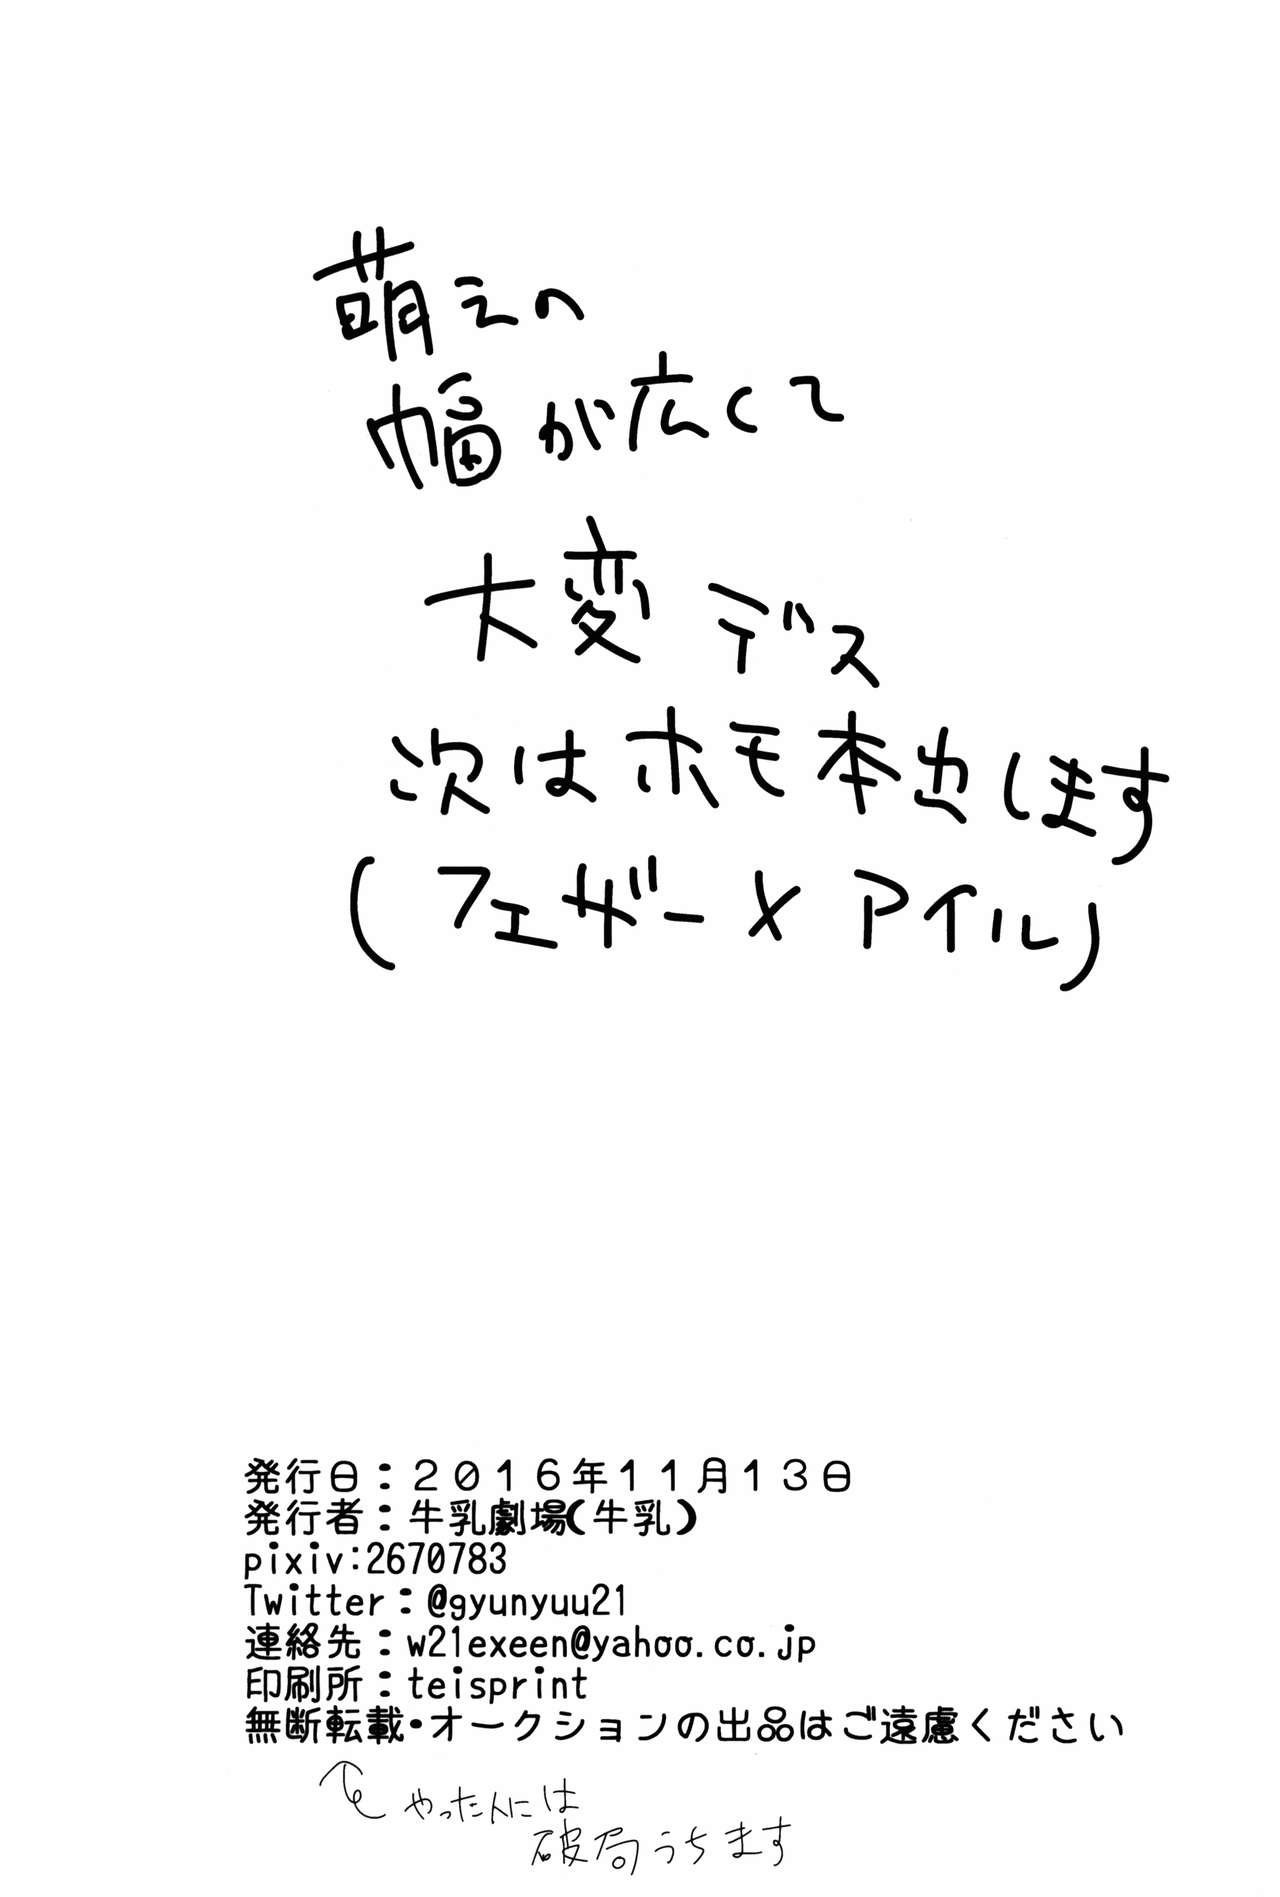 萌えの
幅が広くて
大変デス
次はホモ本出します
(フェザー×アイル)
発行日：２０１６年１１月１３日
発行者：牛乳劇場(牛乳)
pixiv:2670783
Twitter：@gyunyuu21
連絡先：w21exeen@yahoo.co.jp
印刷所：teisprint
無断転載・オークションの出品はご遠慮ください
やった人には
破局うちます